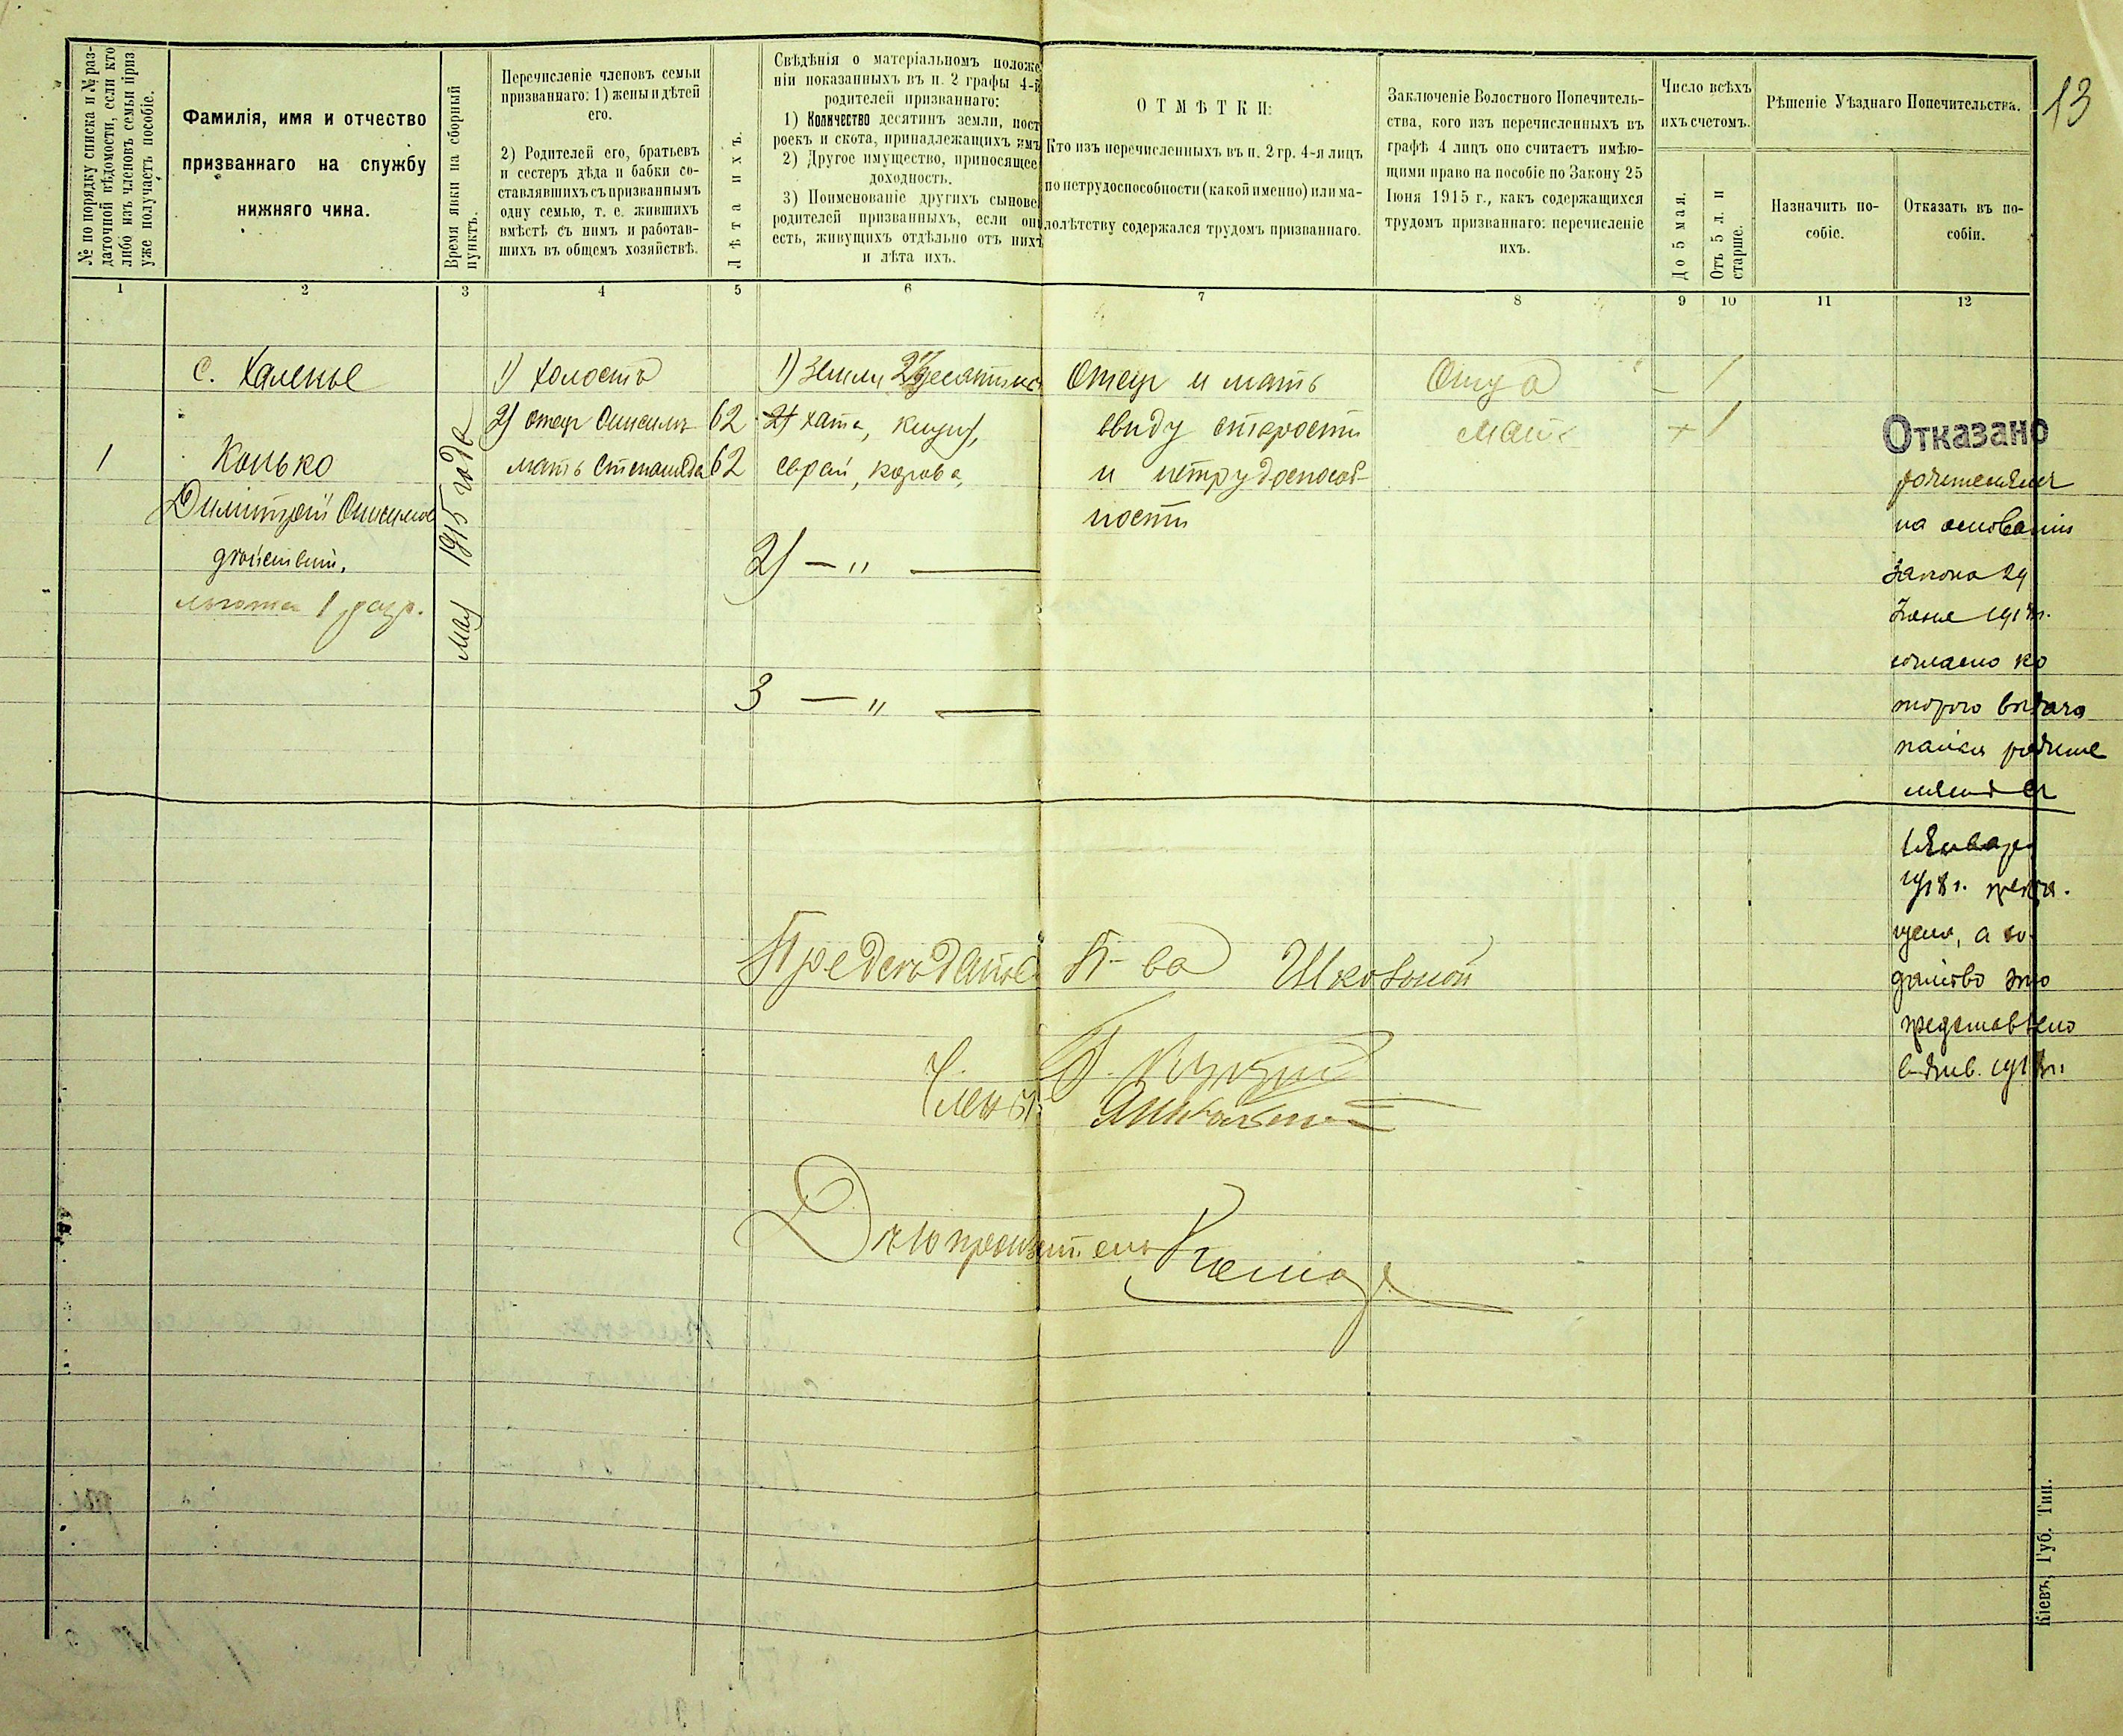 13
№ по порядку списка и № раз-
даточной вѣдомости, если кто
либо изъ членовъ семьи приз
уже получаетъ пособіе.
Фамилія, имя и отчество
призваннаго на службу
нижняго чина.
Время явки на сборный
пунктъ.
Перечисленіе членовъ семьи
призваннаго: 1) жены и дѣтей
его.
2) Родителей его, братьевъ
и сестеръ дѣда и бабки со-
ставлявшихъ съ призваннымъ
одну семью, т. е. жившихъ
вмѣстѣ съ нимъ и работав-
шихъ въ общемъ хозяйствѣ.
Лѣта ихъ.
Свѣдѣнія о матеріальномъ положе
ніи показанныхъ въ п. 2 графы 4-й
родителей призваннаго:
1) Количество десятинъ земли, пост
роекъ и скота, принадлежащихъ имъ
2) Другое имущество, приносящее
доходность.
3) Поименованіе другихъ сынове
родителей призванныхъ, если они
есть, живущихъ отдѣльно отъ нихъ
и лѣта ихъ.
ОТМѢТКИ:
Кто изъ перечисленныхъ въ п. 2 гр. 4-я лицъ
по нетрудоспособности (какой именно) или ма-
лолѣтству содержался трудомъ призваннаго.
Заключеніе Волостного Попечитель-
ства, кого изъ перечисленныхъ въ
графѣ 4 лицъ оно считаетъ имѣю-
щими право на пособіе по Закону 25
Іюня 1915 г., какъ содержащихся
трудомъ призваннаго: перечисленіе
ихъ.
Число всѣхъ
ихъ счетомъ.
До 5 мая.
Отъ 5 л. и
старше.
Рѣшеніе Уѣзднаго Попечительства.
Назначить по-
собіе.
Отказать въ по-
собіи.
1 2 3 4 5 6 7 8 9 10 11 12
с. Халепье
1
Конько
Димитрій Онисимов
дѣйствит.
льгота 1 разр.
Мая 1915 года
1) холостъ
2) отец Онисимъ 62
мать Степанида 62
1) Земли десятины
2) хата,
сарай, корова,
2) — " —
3 — " —
Отец и мать
ввиду старости
и нетрудоспособ-
ности
Отца
мать
– 1
+ 1
Отказано
родителям
на основаніи
Закона 29
Іюня 1917 г.
согласно ко
торого выдача
пайка родите
лям с
1 Января
1918 г. прекра-
щена, а хо-
датайство это
представлено
в Янв. 1918 г.
Предсѣдатель П-ва
Члены:
Дѣлопроизводитель
Кіевъ, Губ. Тип.